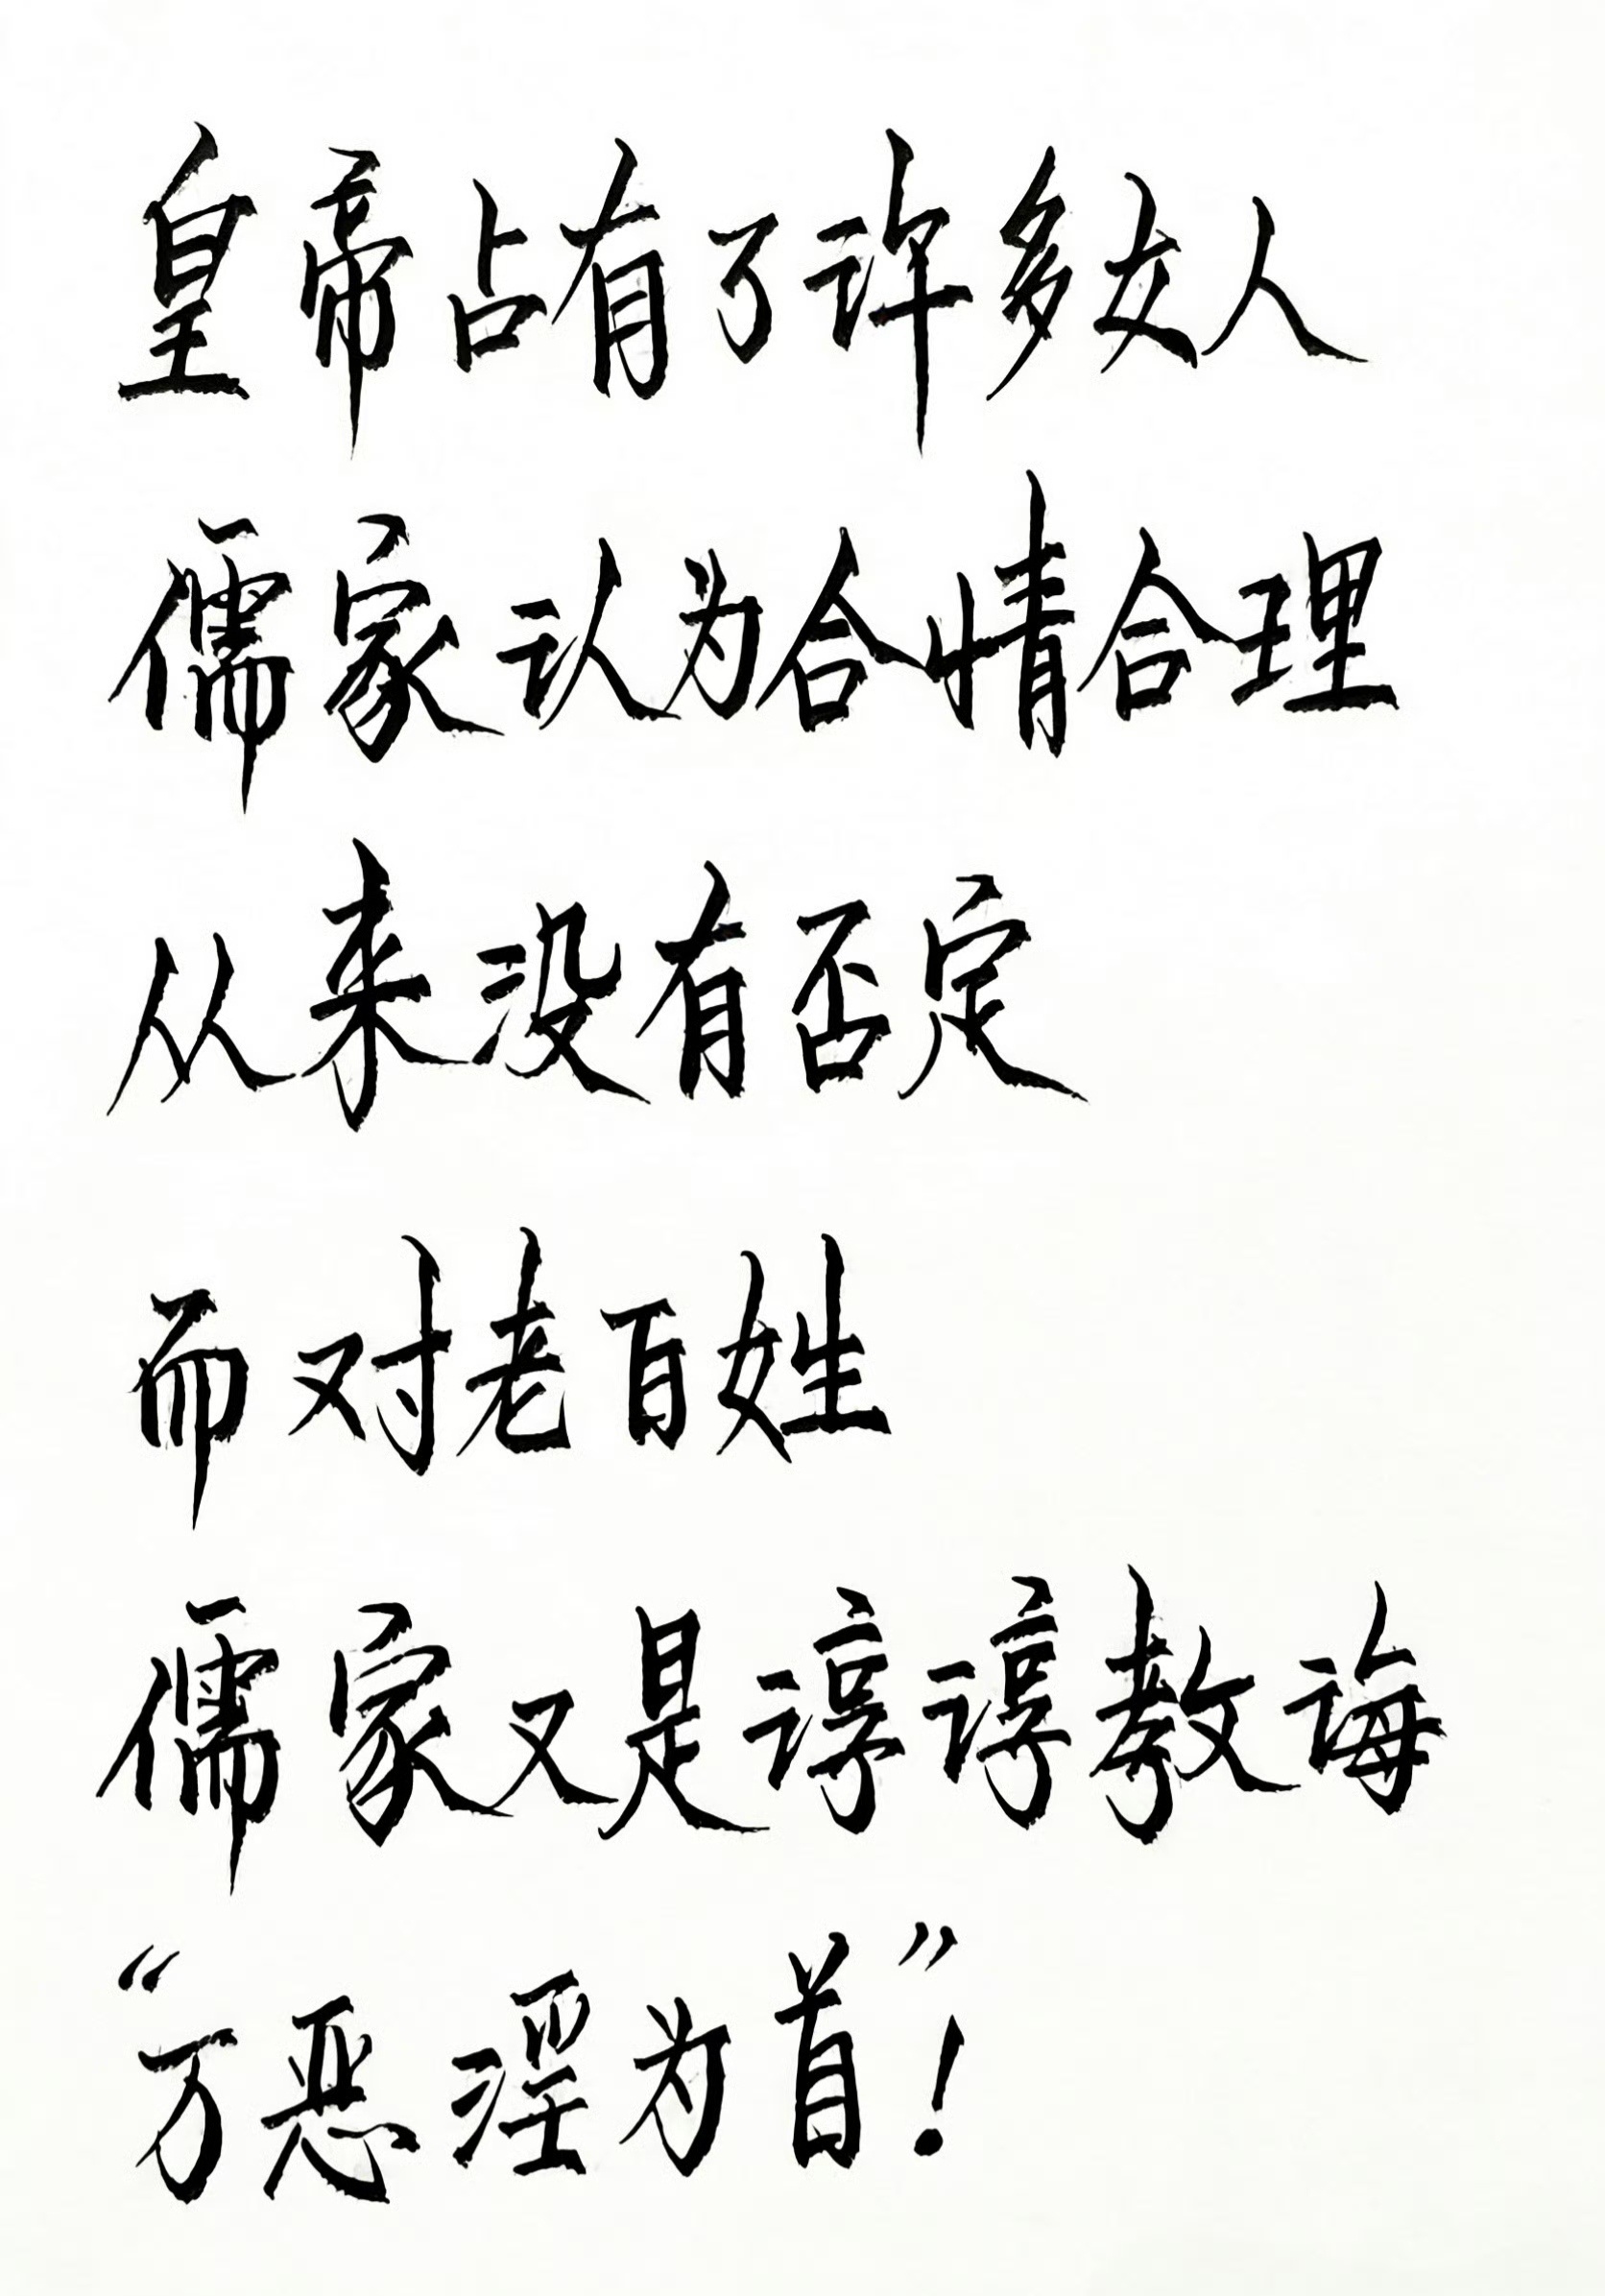 皇帝占有了许多女人
儒家认为合情合理
从来没有否定
而对老百姓
儒家又是谆谆教诲
“万恶淫为首”！